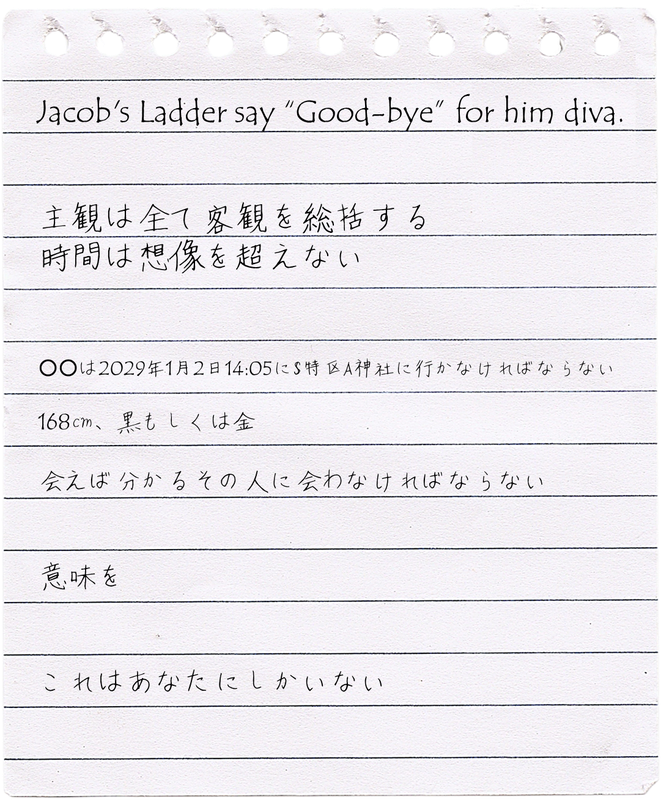 Jacob's Ladder say “Good-bye” for him diva.
主観は全て客観を総括する
時間は想像を超えない
〇〇は2029年1月2日14:05にS特区A神社に行かなければならない
168cm、黒もしくは金
会えば分かるその人に会わなければならない
意味を
これはあなたにしかいない